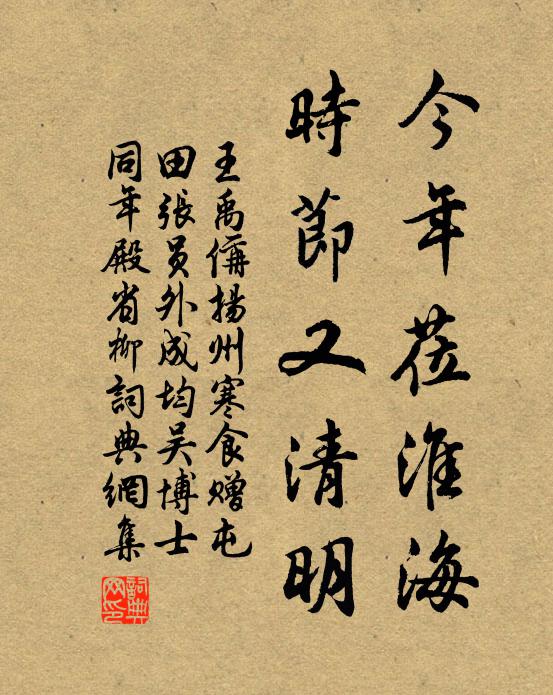 今年莅淮海
時節又清明
王禹偁揚州寒食贈屯
田張員外成均吴博士
同年殿省柳詞典網集
詞典網印